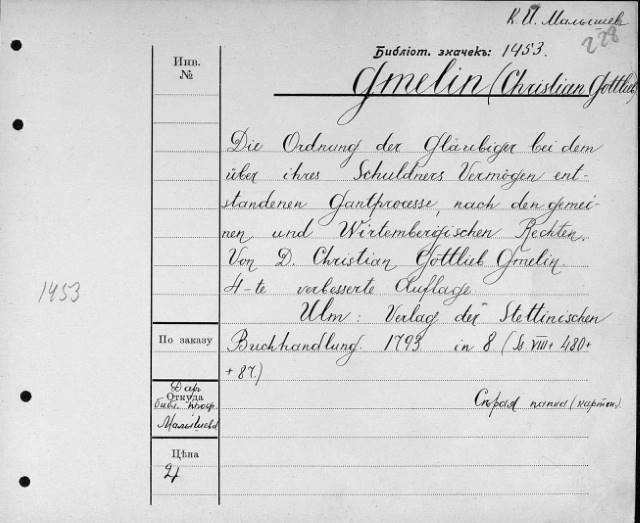 К. И. Малышев
228
Библіот. значекъ: 1453.
Инв.
№
Gmelin (Christian Gottlieb)
Die Ordnung der Gläubiger bei dem
über ihres Schuldners Vermögen ent-
standenen Gantprocesse, nach den gemei-
nen und Wirtembergischen Rechten.
Von D. Christian Gottlieb Gmelin.
4-te verbesserte Auflage.
1453
Ulm: Verlag der Stettinischen
По заказу
Buchhandlung. 1793 in 8 (S. VIII + 480 +
+ 87.)
Даръ
Откуда
библ. проф.
Малышева
Сѣрая папка (картон.)
Цѣна